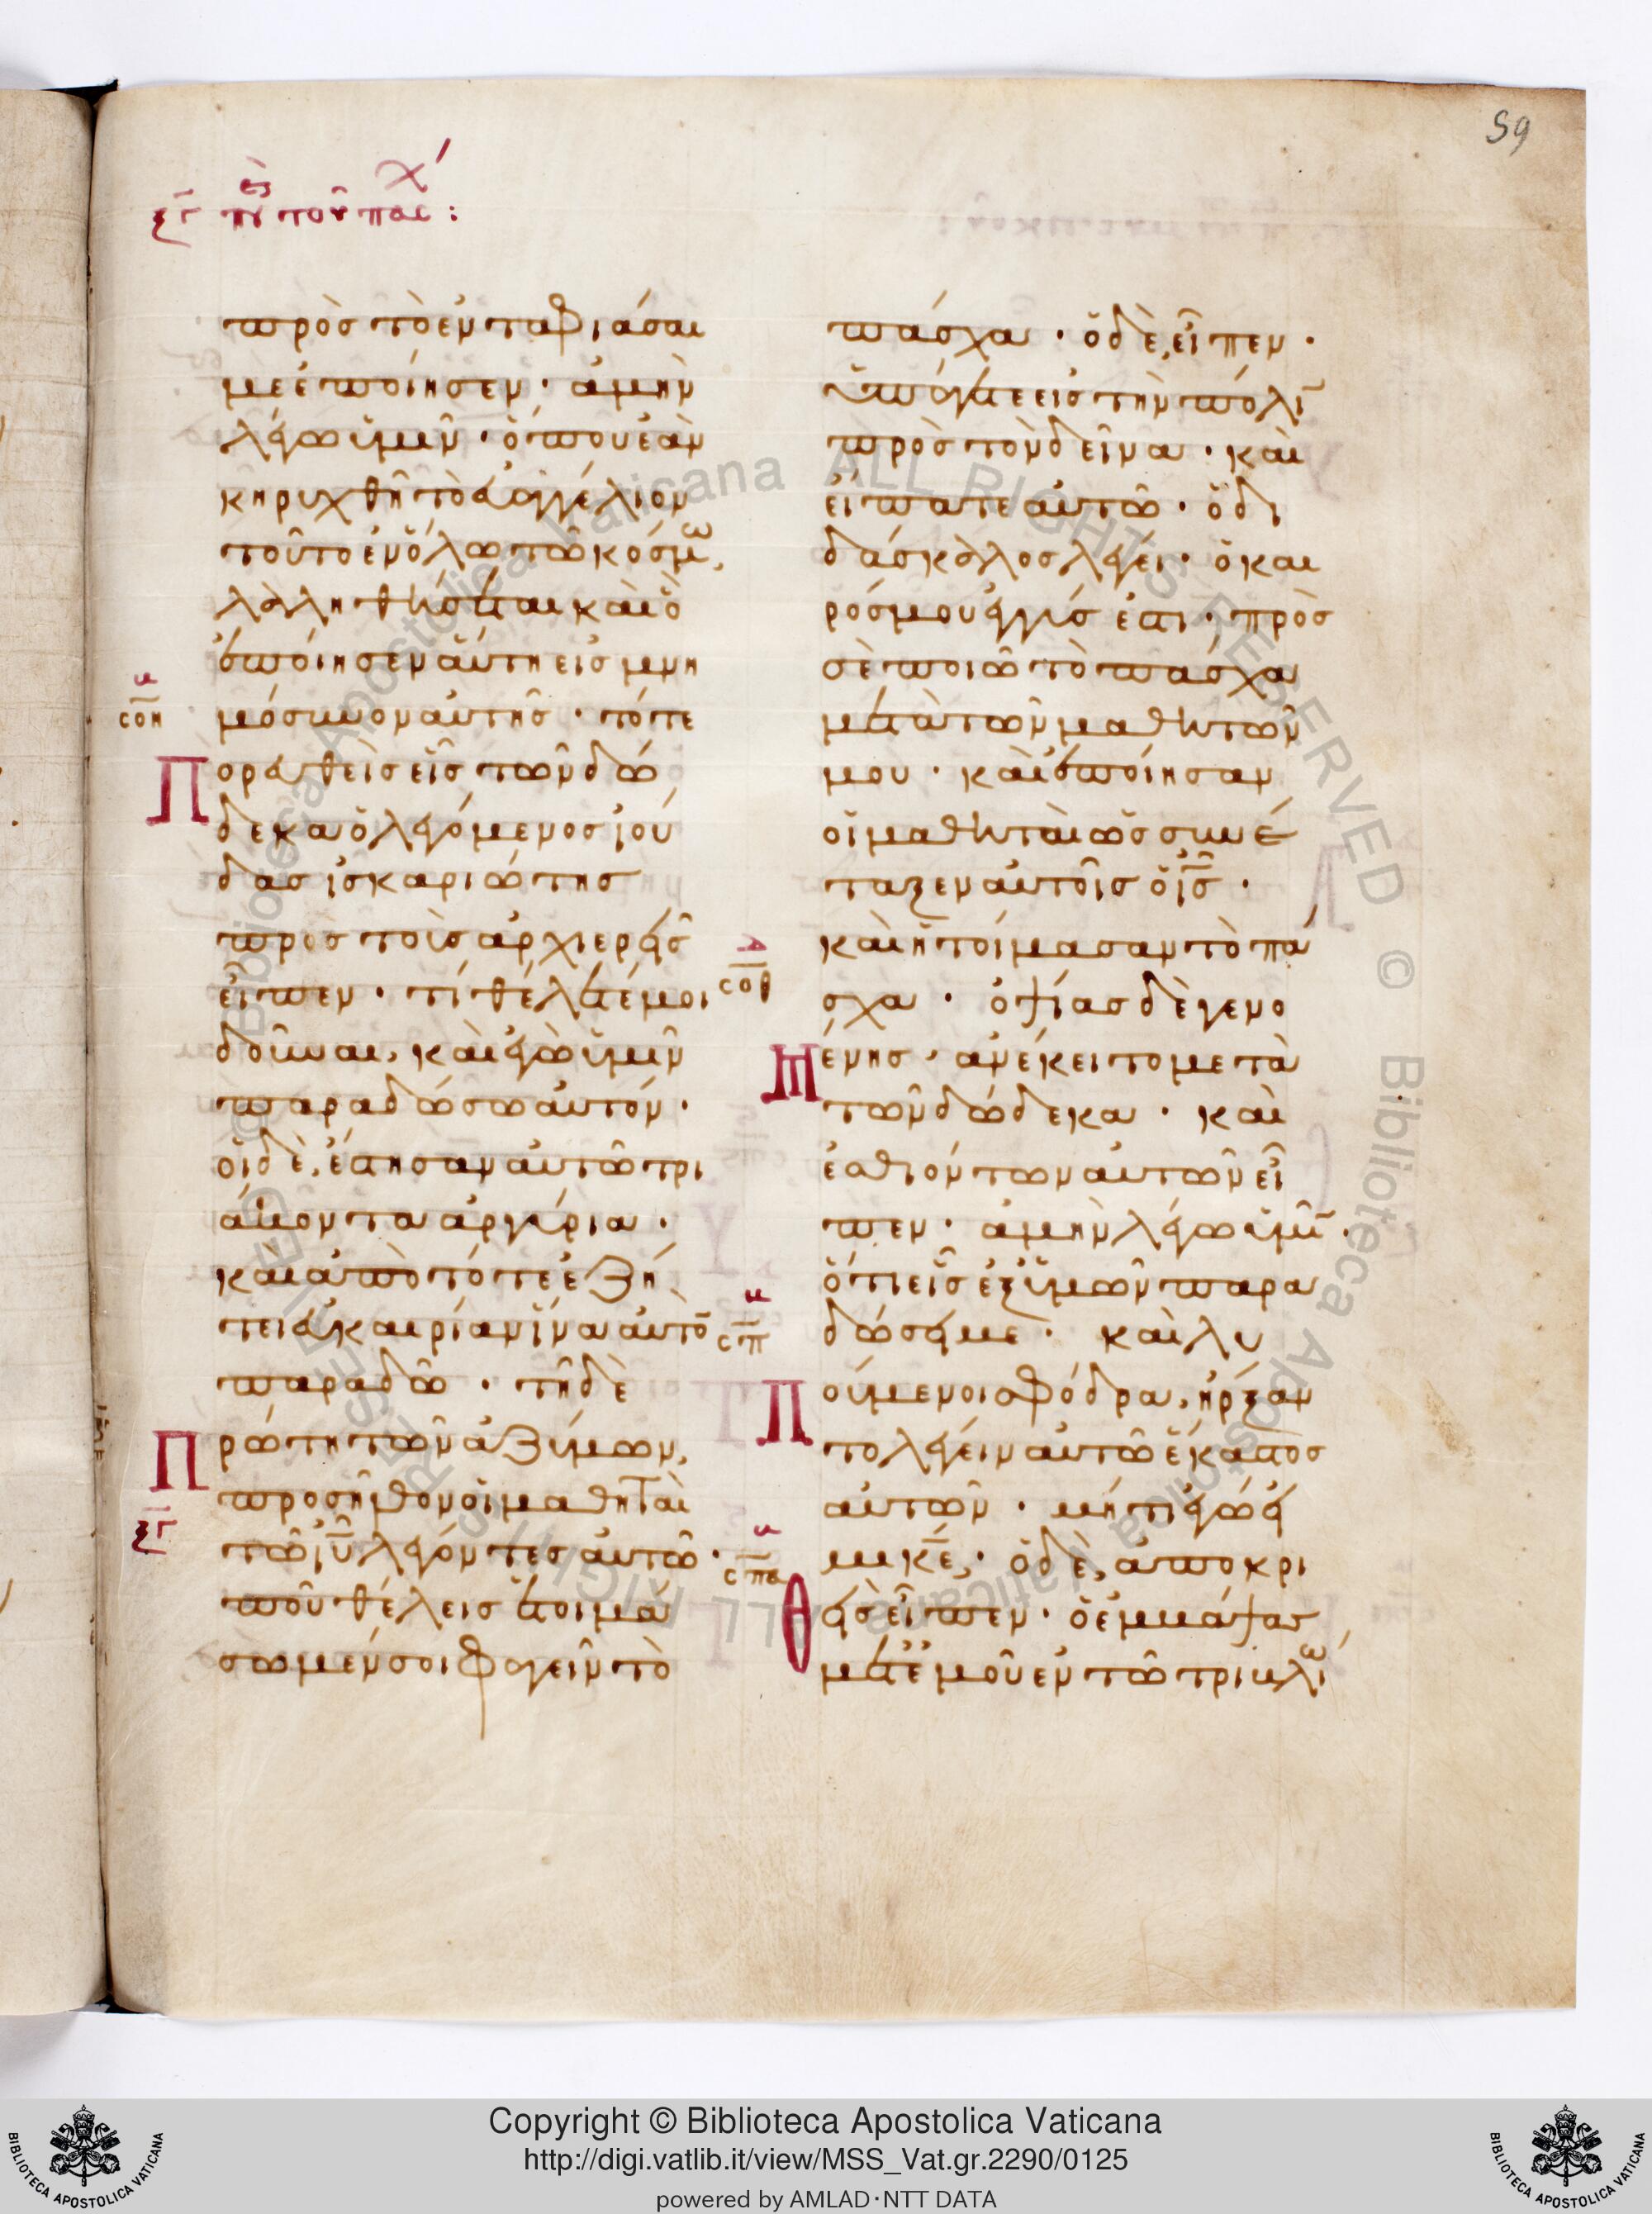 59
ξζ περὶ τοῦ πάσχ :
πρὸς τὸ ἐνταφιάσαι
με ἐποίησεν · ἀμὴν
λέγω ὑμῖν · ὅπου ἐὰν
κηρυχθῆ τὸ εὐαγγέλιον
τοῦτο ἐν ὅλω τῶ κόσμω,
λαληθήσεται καὶ ὃ
ἐποίησεν αὕτη εἰς μνη
μόσυνον αὐτῆς · τότε
Πορευθεὶς εἷς τῶν δώ
δεκα ὁ λεγόμενος ἰού
δας ἰσκαριώτης
πρὸς τοὺς ἀρχιερεῖς
εἶπεν · τί θέλετέ μοι
δοῦναι, καὶ ἐγὼ ὑμῖν
παραδώσω αὐτόν ·
οἱ δὲ, ἔστησαν αὐτῶ τρι
άκοντα ἀργύρια ·
καὶ ἀπὸ τότε ἐζή
τει εὐκαιρίαν ἵνα αὐτὸ̅
παραδῶ · τῆ δὲ
Πρώτη τῶν ἀζύμων,
προσῆλθον οἱ μαθηταὶ
τῶ ιῦ λέγοντες αὐτῶ ·
ποῦ θέλεις ἑτοιμά
σωμέν σοι φαγεῖν τὸ
πάσχα · ὁ δὲ, εἶπεν ·
ὑπάγετε εἰς τὴν πόλι̅
πρὸς τὸν δεῖνα · καὶ
εἴπατε αὐτῶ · ὁ δι
δάσκαλος λέγει · ὁ και
ρός μου ἐγγύς ἐστι · πρὸς
σὲ ποιῶ τὸ πάσχα
μετὰ τῶν μαθητῶν
μου · καὶ ἐποίησαν
οἱ μαθηταὶ ὡς συνέ
ταξεν αὐτοῖς ὁ ις ·
καὶ ἡτοίμασαν τὸ πά
σχα · ὀψίας δὲ γενο
Μένης · ἀνέκειτο μετὰ
τῶν δώδεκα · καὶ
ἐσθιόντων αὐτῶν εἶ
πεν · ἀμὴν λέγω ὑμῖ̅ ·
ὅτι εἷς ἐξ ὑμῶν παρα
δώσει με · καὶ λυ
Πούμενοι σφόδρα, ἤρξαν
το λέγειν αὐτῶ ἕκαστος
αὐτῶν · μήτι ἐγώ εἰ
μι κε, · ὁ δὲ, ἀποκρι
Θεὶς εἶπεν · ὁ ἐμβάψας
μετ' ἐμοῦ ἐν τῶ τρυβλίω
σοη
σοθ
σπ
σπα
ξζ
Copyright © Biblioteca Apostolica Vaticana
http://digi.vatlib.it/view/MSS_Vat.gr.2290/0125
powered by AMLAD·NTT DATA
BIBLIOTECA APOSTOLICA VATICANA
BIBLIOTECA APOSTOLICA VATICANA
© Biblioteca Apostolica Vaticana ALL RIGHTS RESERVED